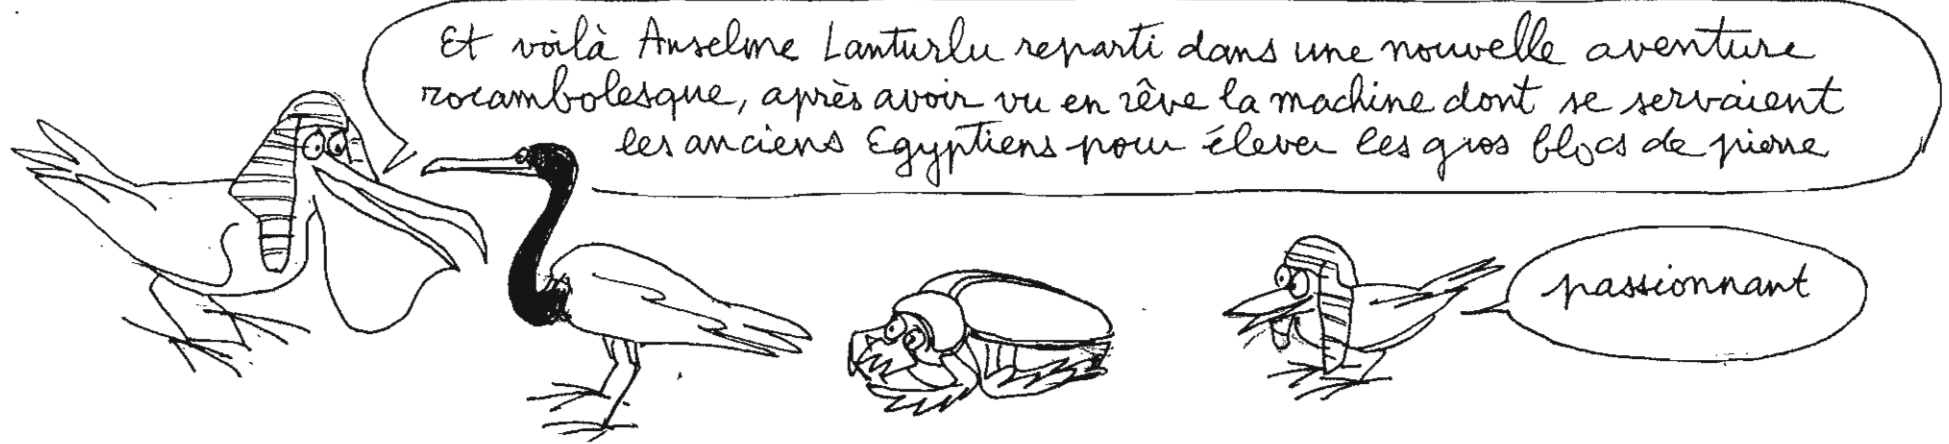 Et voilà Anselme Lanturlu reparti dans une nouvelle aventure
rocambolesque, après avoir vu en rêve la machine dont se servaient
les anciens Egyptiens pour élever les gros blocs de pierre
passionnant